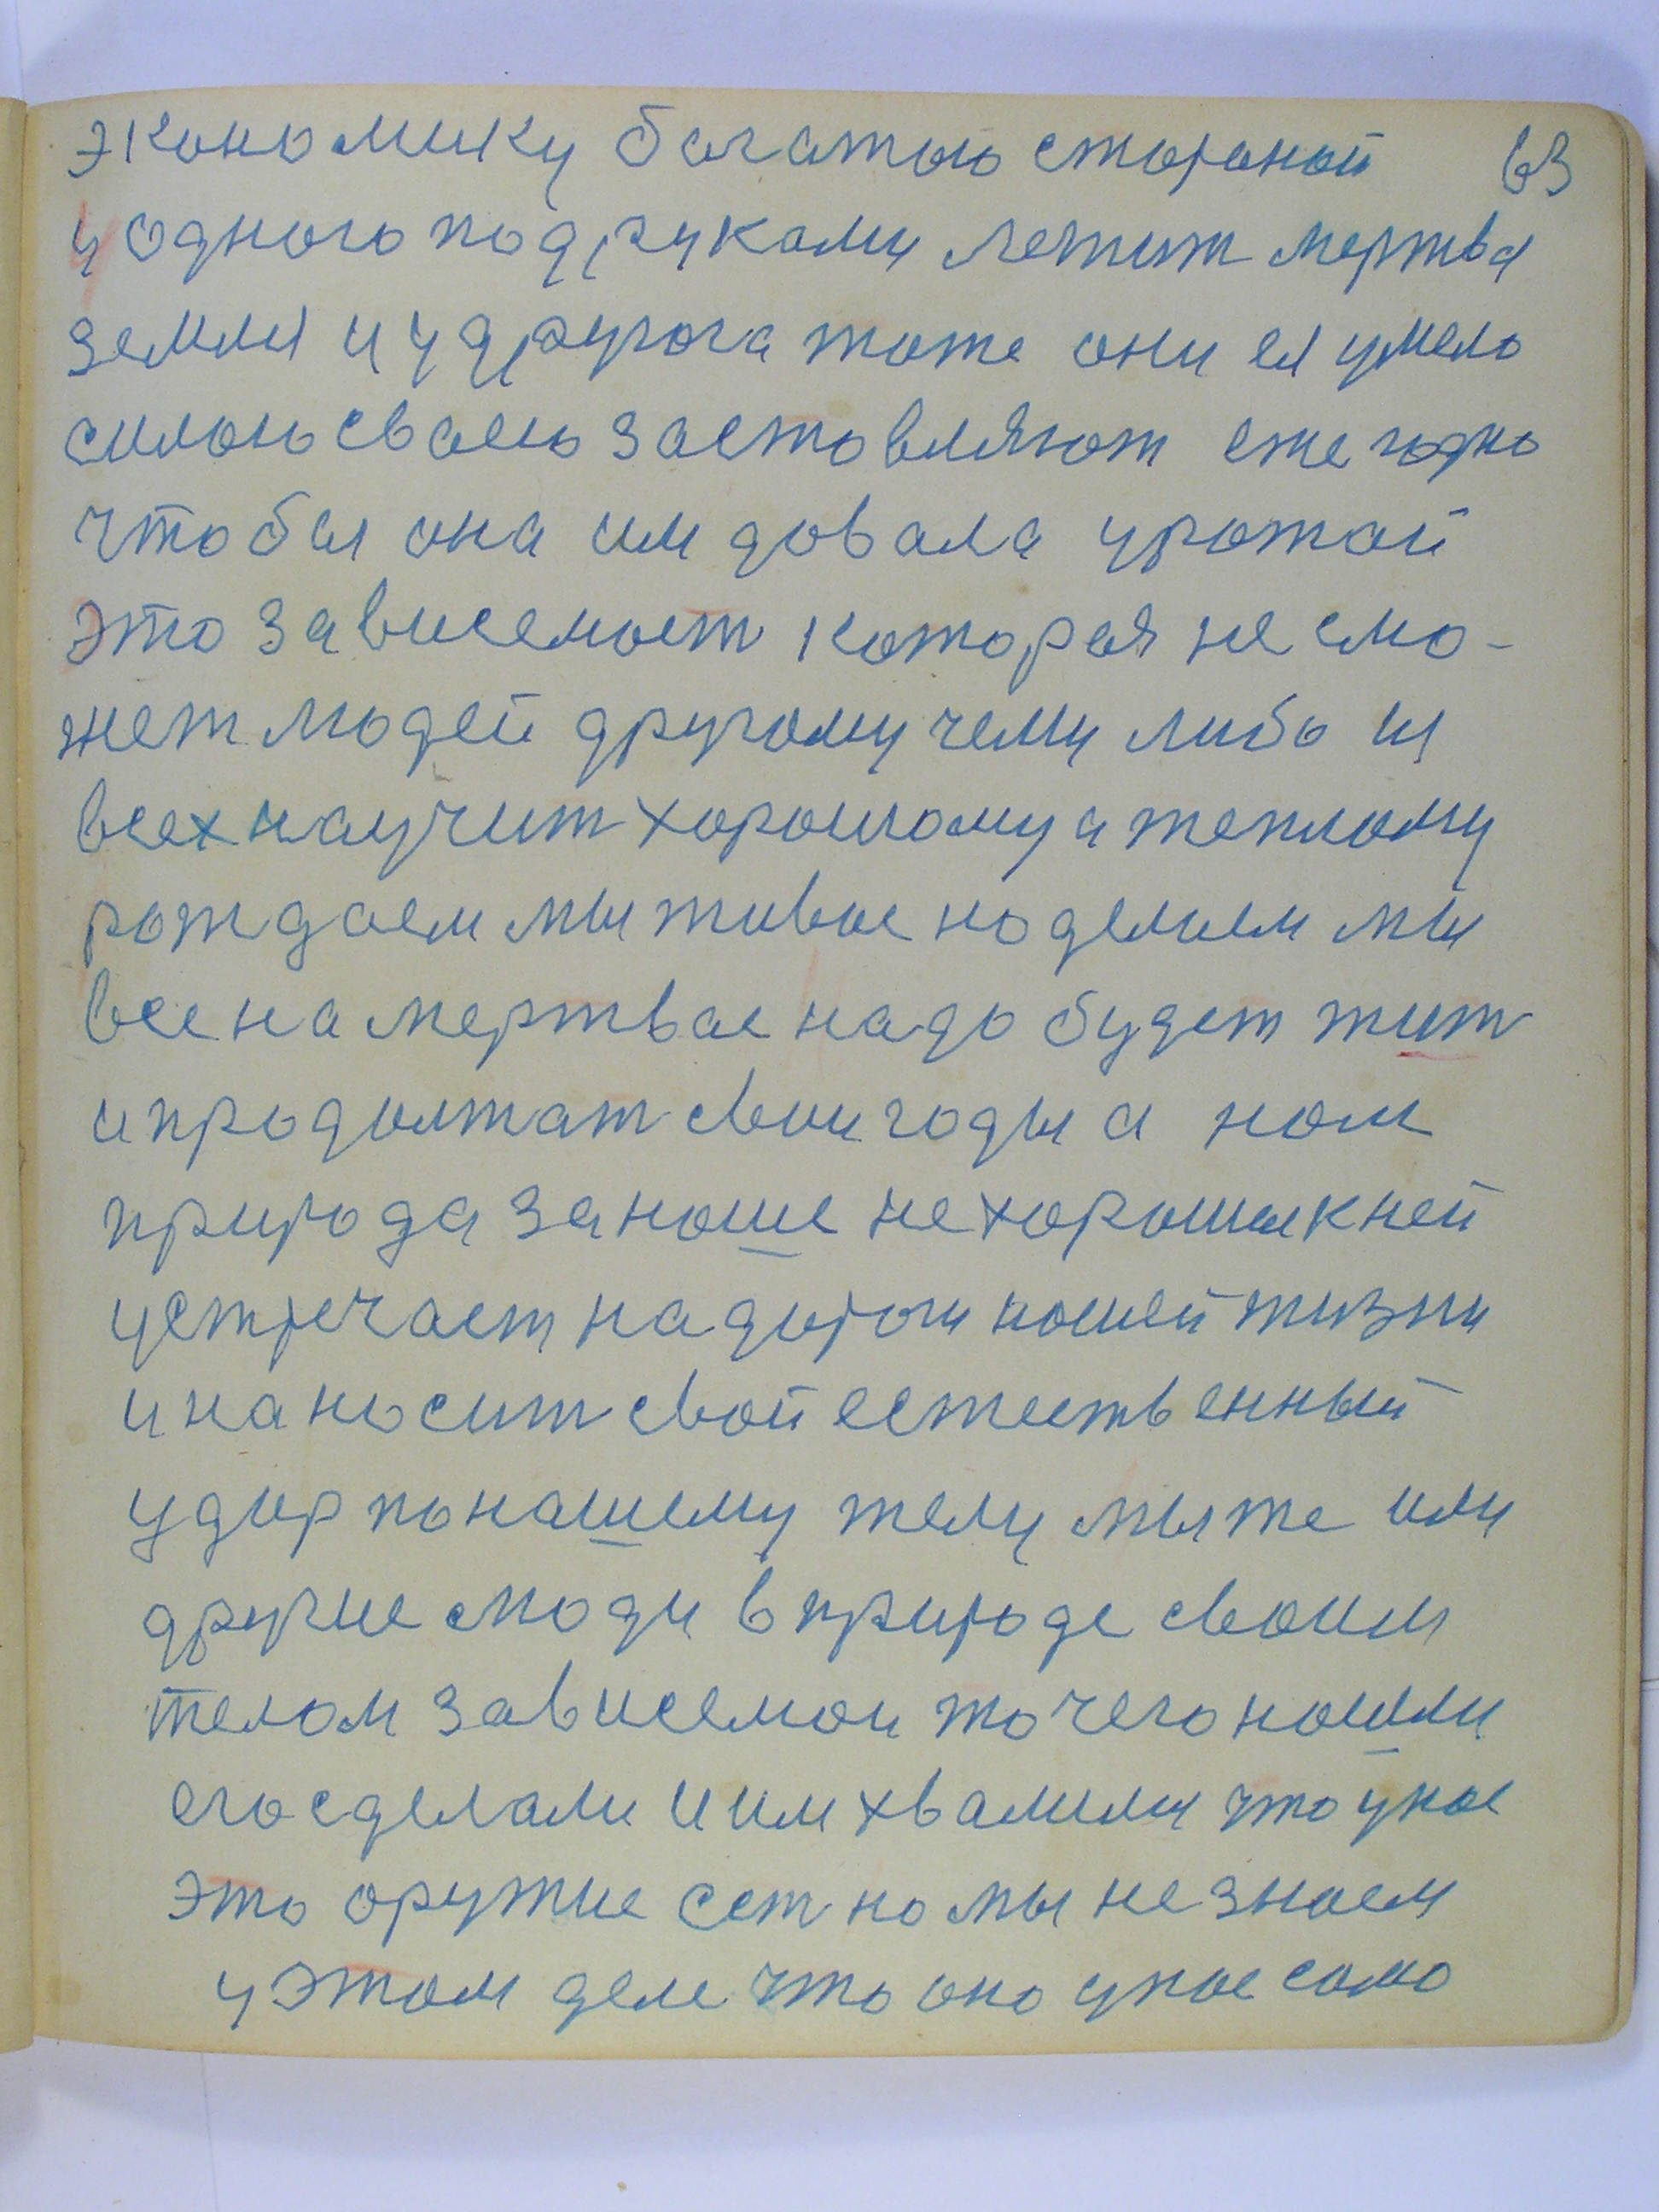 экономику богатою стороной 63
у одного под руками лежит мертва
земля и у другога тоже они ея умело
силою сваею заставляют ежегодно
чтобы она им довала урожай
это зависемост которая не смо-
жет людей другому чему либо их
всех научит хорошому а теплому
рождаем мы живое но делаем мы
все на мертвае надо будет жит
и продолжат свои годы а нам
природа за наше не хорошые к ней
устречает на дороги нашей жизни
и наносит свой естественный
удар по нашему телу мы же или
другие люди в природе своим
телом зависемои то чего нашли
его сделали и им хвалимы что у нас
это оружие ест но мы не знаем
у этом деле что оно у нас само